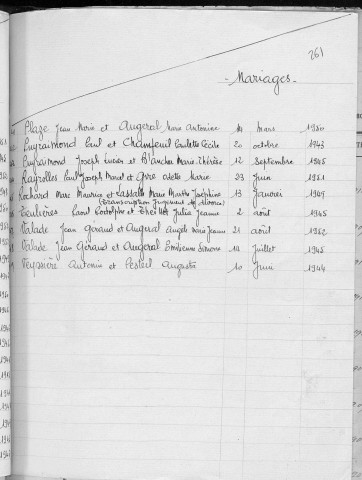 261
- Mariages -
Plaze Jean Marie et Augeral Marie Antonine mars 1950
Puyraimond Paul et Chambeuil Paulette Cécile 20 octobre 1943
Puyraimond Joseph Lucien et Blancher Marie-Thérèse 12 Septembre 1945
Rayrolles Paul Joseph Marcel et Odette Marie 23 Juin 1951
Rochard Marc Maurice et Lassalle Marie Marthe Joséphine 13 Janvier 1949
(Transcription Jugement de divorce)
Teulières Raoul Rodolphe et Julia Jeanne 2 août 1945
Valade Jean Géraud et Augeral Angèle Marie Jeanne 21 août 1952
Valade Jean Géraud et Augeral Emilienne Simone Juillet 1945
Veyssière Antonin et Lesteil Augusta 10 Juin 1944